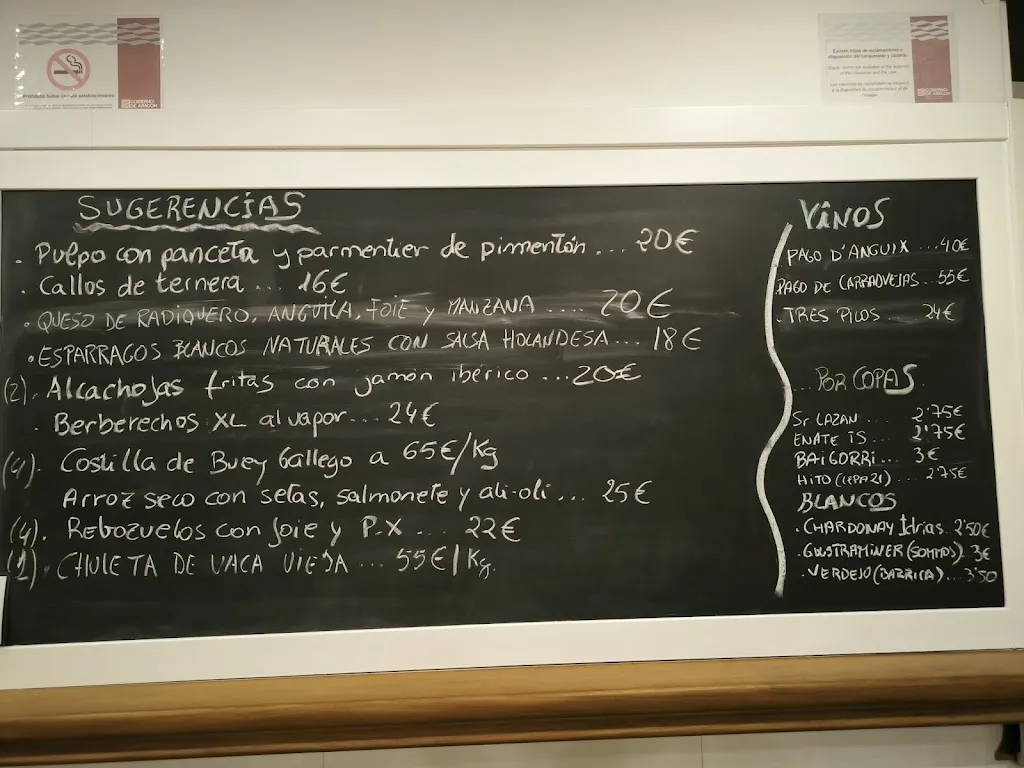 Prohibido fumar en este establecimiento
GOBIERNO
DE ARAGON
Existen hojas de reclamaciones a
disposición del consumidor y usuario.
GOBIERNO
DE ARAGON
SUGERENCÍAS
- Pulpo con panceta y parmentier de pimentón ... 20€
. Callos de ternera ... 16€
. QUESO DE RADIQUERO, ANGUILA, FOIE y MANZANA .... 20€
. ESPARRAGOS BLANCOS NATURALES CON SALSA HOLANDESA ... 18€
(2). Alcachofas fritas con jamón ibérico ... 20€
. Berberechos XL al vapor ... 24€
(4). Costilla de Buey Gallego a 65€/Kg
Arroz seco con setas, salmonete y ali-oli ... 25€
(4). Rebozuelos con foie y P.X .... 22€
(1). CHULETA DE VACA VIEJA ... 55€/Kg.
VINOS
PAGO D'ANGUIX ... 40€
PAGO DE CARRAOVEJAS ... 55€
. TRES PICOS ... 24€
... POR COPAS
Sr LAZAN ... 2'75€
ENATE TS ... 2'75€
BAIGORRI ... 3€
HITO (CEPA 21) ... 2'75€
BLANCOS
. CHARDONAY Idrias. 2'50€
. GUSTRAMINER (SOMMOS). 3€
. VERDEJO (BARRICA) ... 3'50